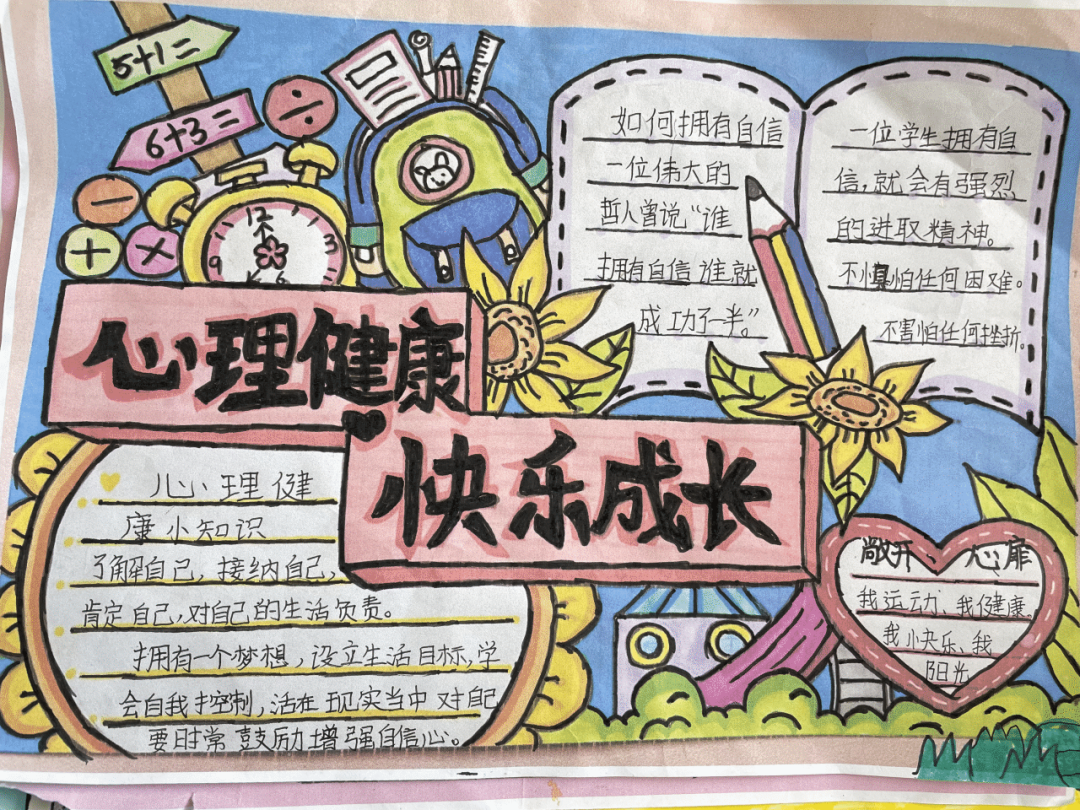 5+1=
6+3=
÷
−
+
×
12
3
6
9
如何拥有自信
一位伟大的
哲人曾说“谁
拥有自信谁就
成功了一半。”
一位学生拥有自
信，就会有强烈
的进取精神。
不惧怕任何困难。
不害怕任何挫折。
心理健康
快乐成长
心理健
康小知识
了解自己，接纳自己，
肯定自己，对自己的生活负责。
拥有一个梦想，设立生活目标，学
会自我控制，活在现实当中对自己
要时常鼓励增强自信心。
敞开、心扉
我运动、我健康。
我快乐、我
阳光